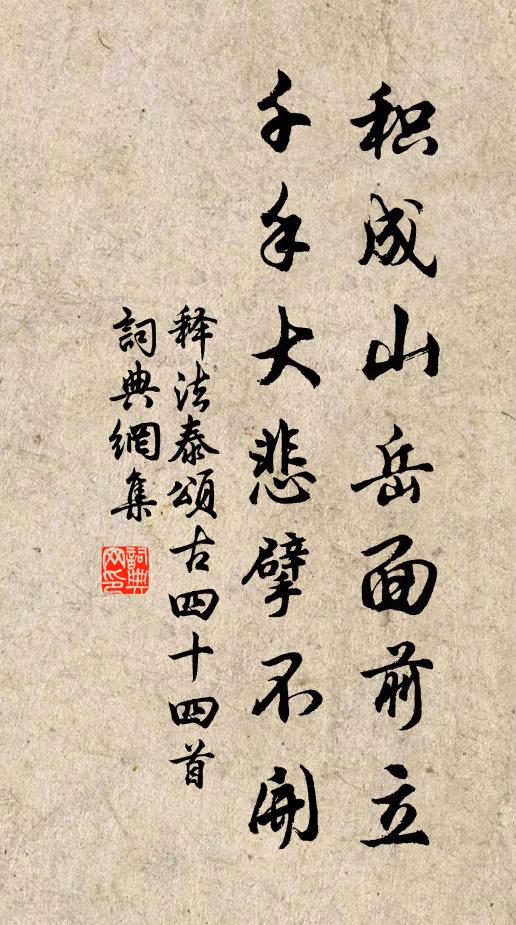 积成山岳面前立
千手大悲擘不開
释法泰頌古四十四首
詞典網集
詞典网印